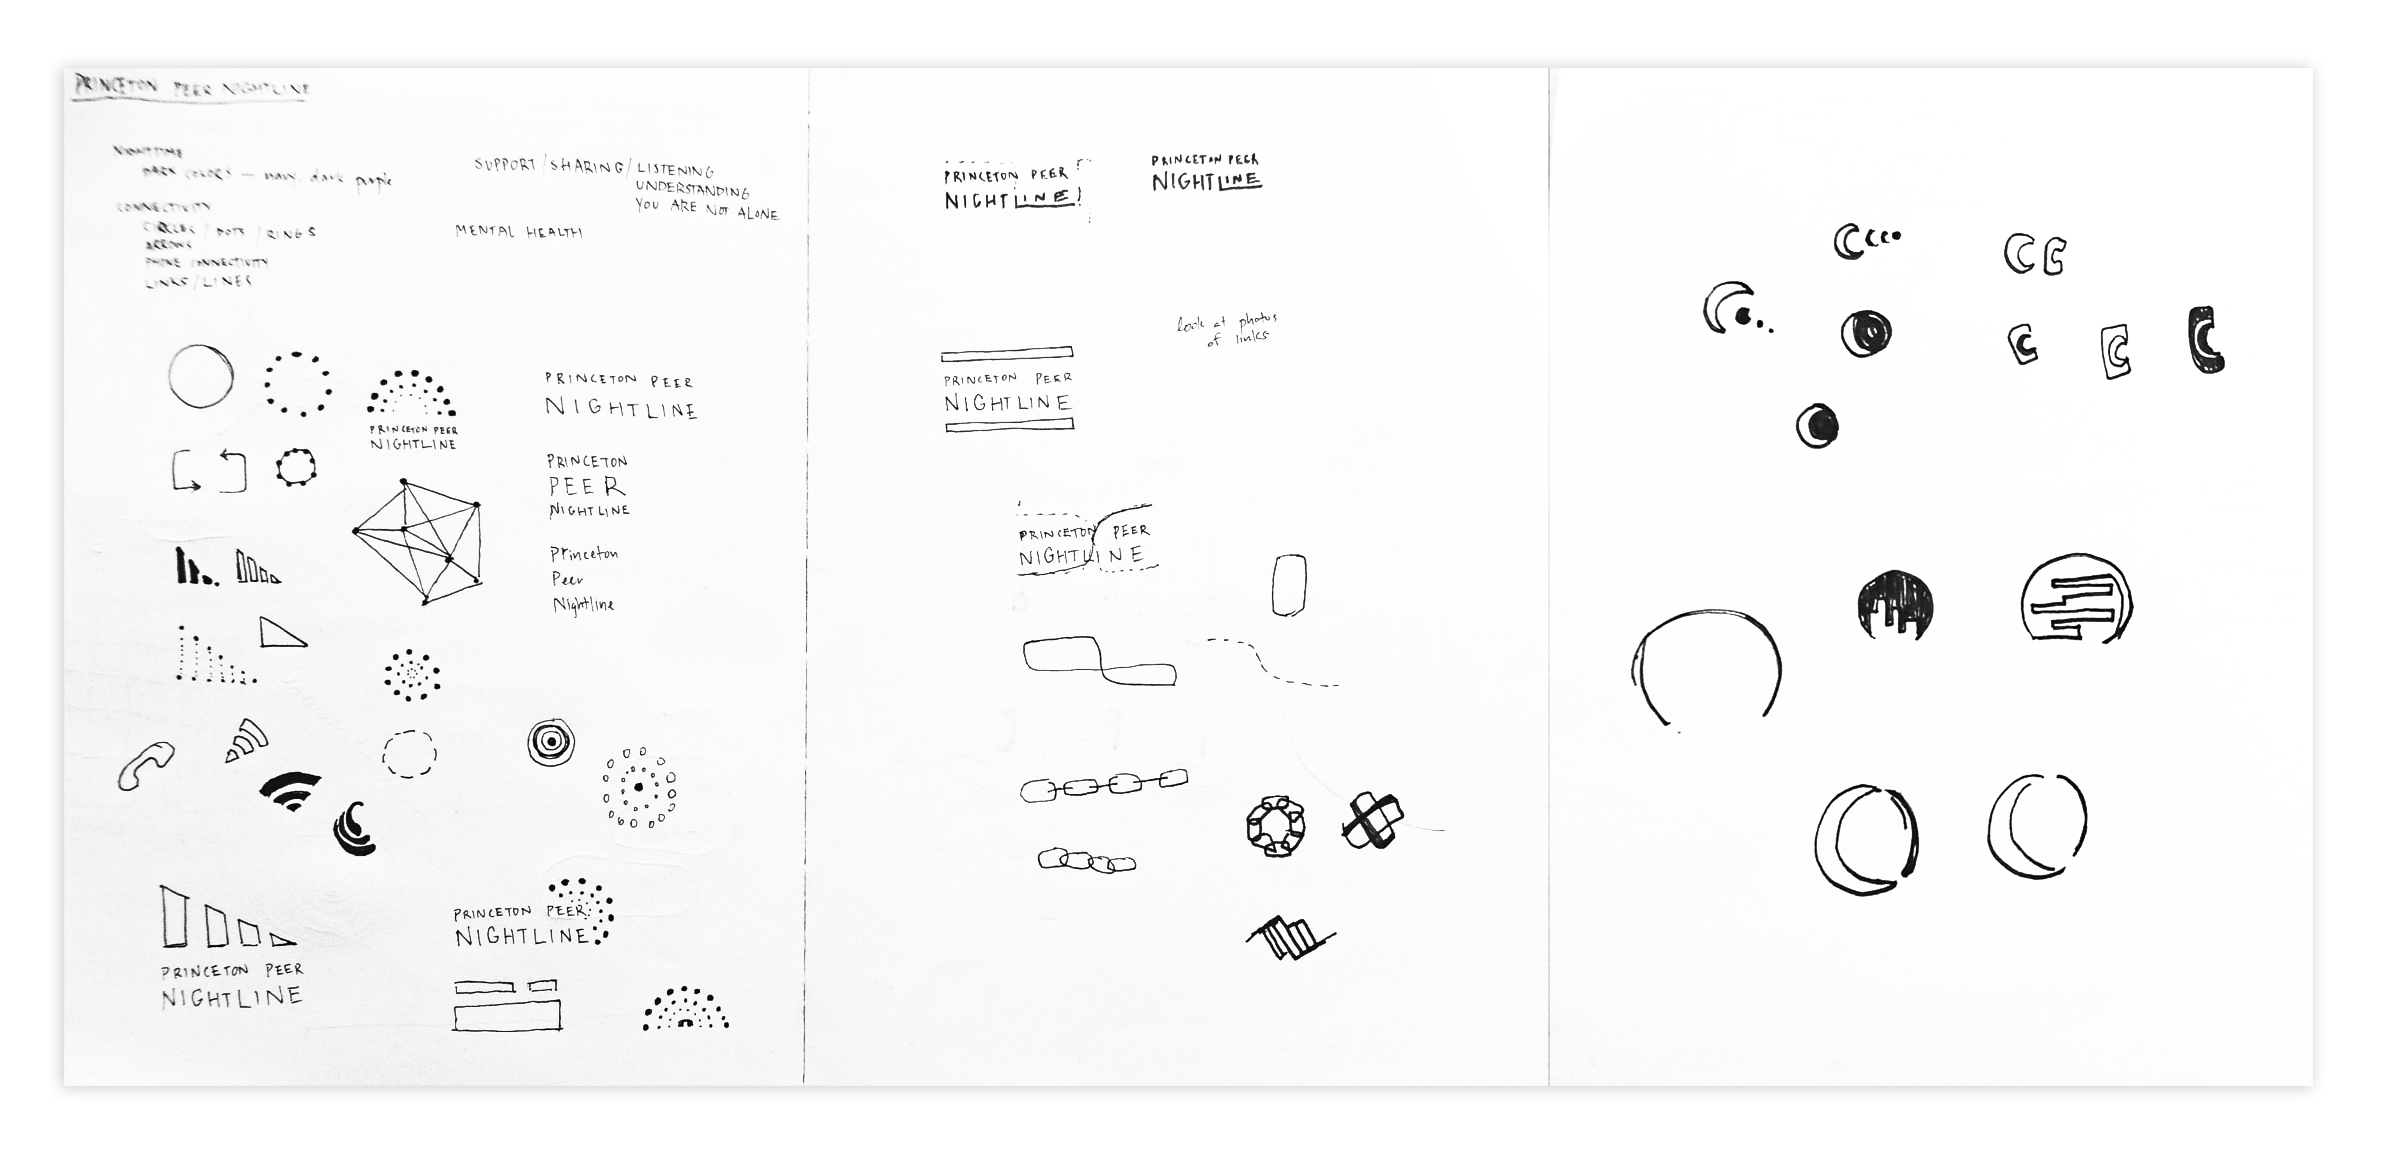 PRINCETON PEER NIGHTLINE
NIGHTTIME
DARK COLORS — navy, dark purple
CONNECTIVITY
CIRCLES / DOTS / RINGS
ARROWS
PHONE CONNECTIVITY
LINKS / LINES
SUPPORT / SHARING / LISTENING
UNDERSTANDING
YOU ARE NOT ALONE
MENTAL HEALTH
PRINCETON PEER
NIGHTLINE
PRINCETON PEER
NIGHTLINE
PRINCETON
PEER
NIGHTLINE
Princeton
Peer
Nightline
PRINCETON PEER
NIGHTLINE
PRINCETON PEER
NIGHTLINE
PRINCETON PEER
NIGHTLINE
PRINCETON PEER
NIGHTLINE
look at photos
of links
PRINCETON PEER
NIGHTLINE
PRINCETON PEER
NIGHTLINE